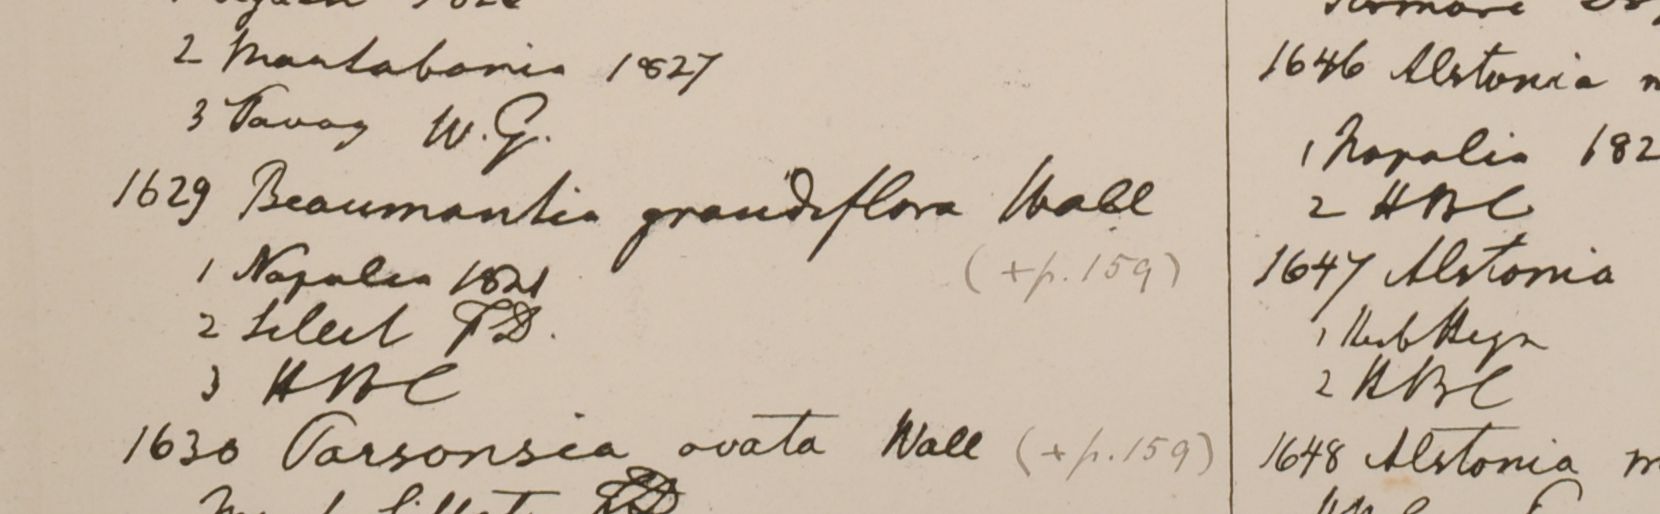 2 Martabania 1827
3 Tavoy W.G.
1629 Beaumontia grandiflora Wall
(+p.159)
1 Napalia 1821
2 Sillet FD.
3 HBC
1630 Parsonsia ovata Wall (+p.159)
1646 Alstonia
1 Napalia 182
2 HBC
1647 Alstonia
1 Herb Heyn
2 HBC
1648 Alstonia